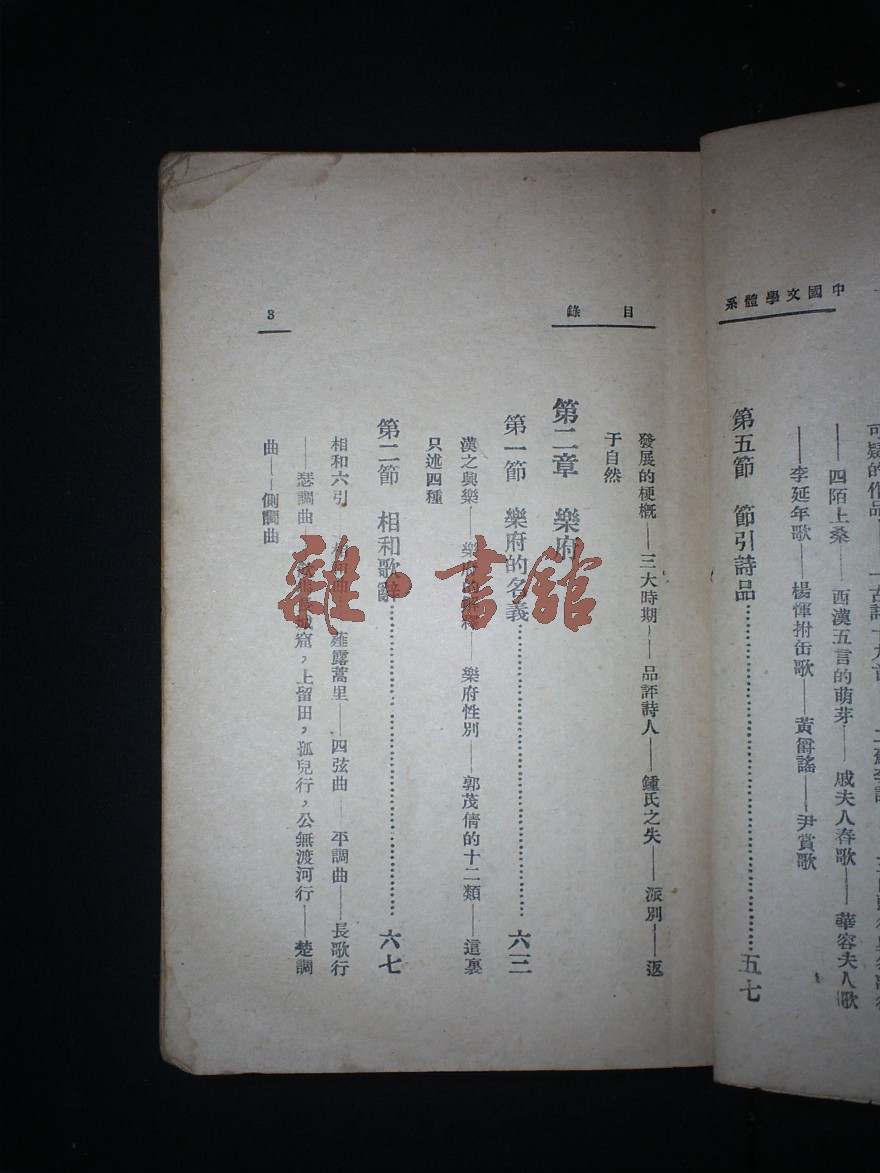 中國文學體系
可疑的作品
——四陌上桑——西漢五言的萌芽——戚夫人舂歌——華容夫人歌
——李延年歌——楊惲拊缶歌——黃爵謠——尹賞歌
第五節 節引詩品……五七
目錄
發展的梗概——三大時期——品評詩人——鍾氏之失——派別——返
于自然
第二章 樂府
第一節 樂府的名義……六三
漢之與樂——樂府的解釋——樂府性別——郭茂倩的十二類——這裏
只述四種
第二節 相和歌辭……六七
相和六引——相和曲——薤露蒿里——四弦曲——平調曲——長歌行
——瑟調曲——窟,上留田,孤兒行,公無渡河行——楚調
曲——側調曲
3
雜·書館